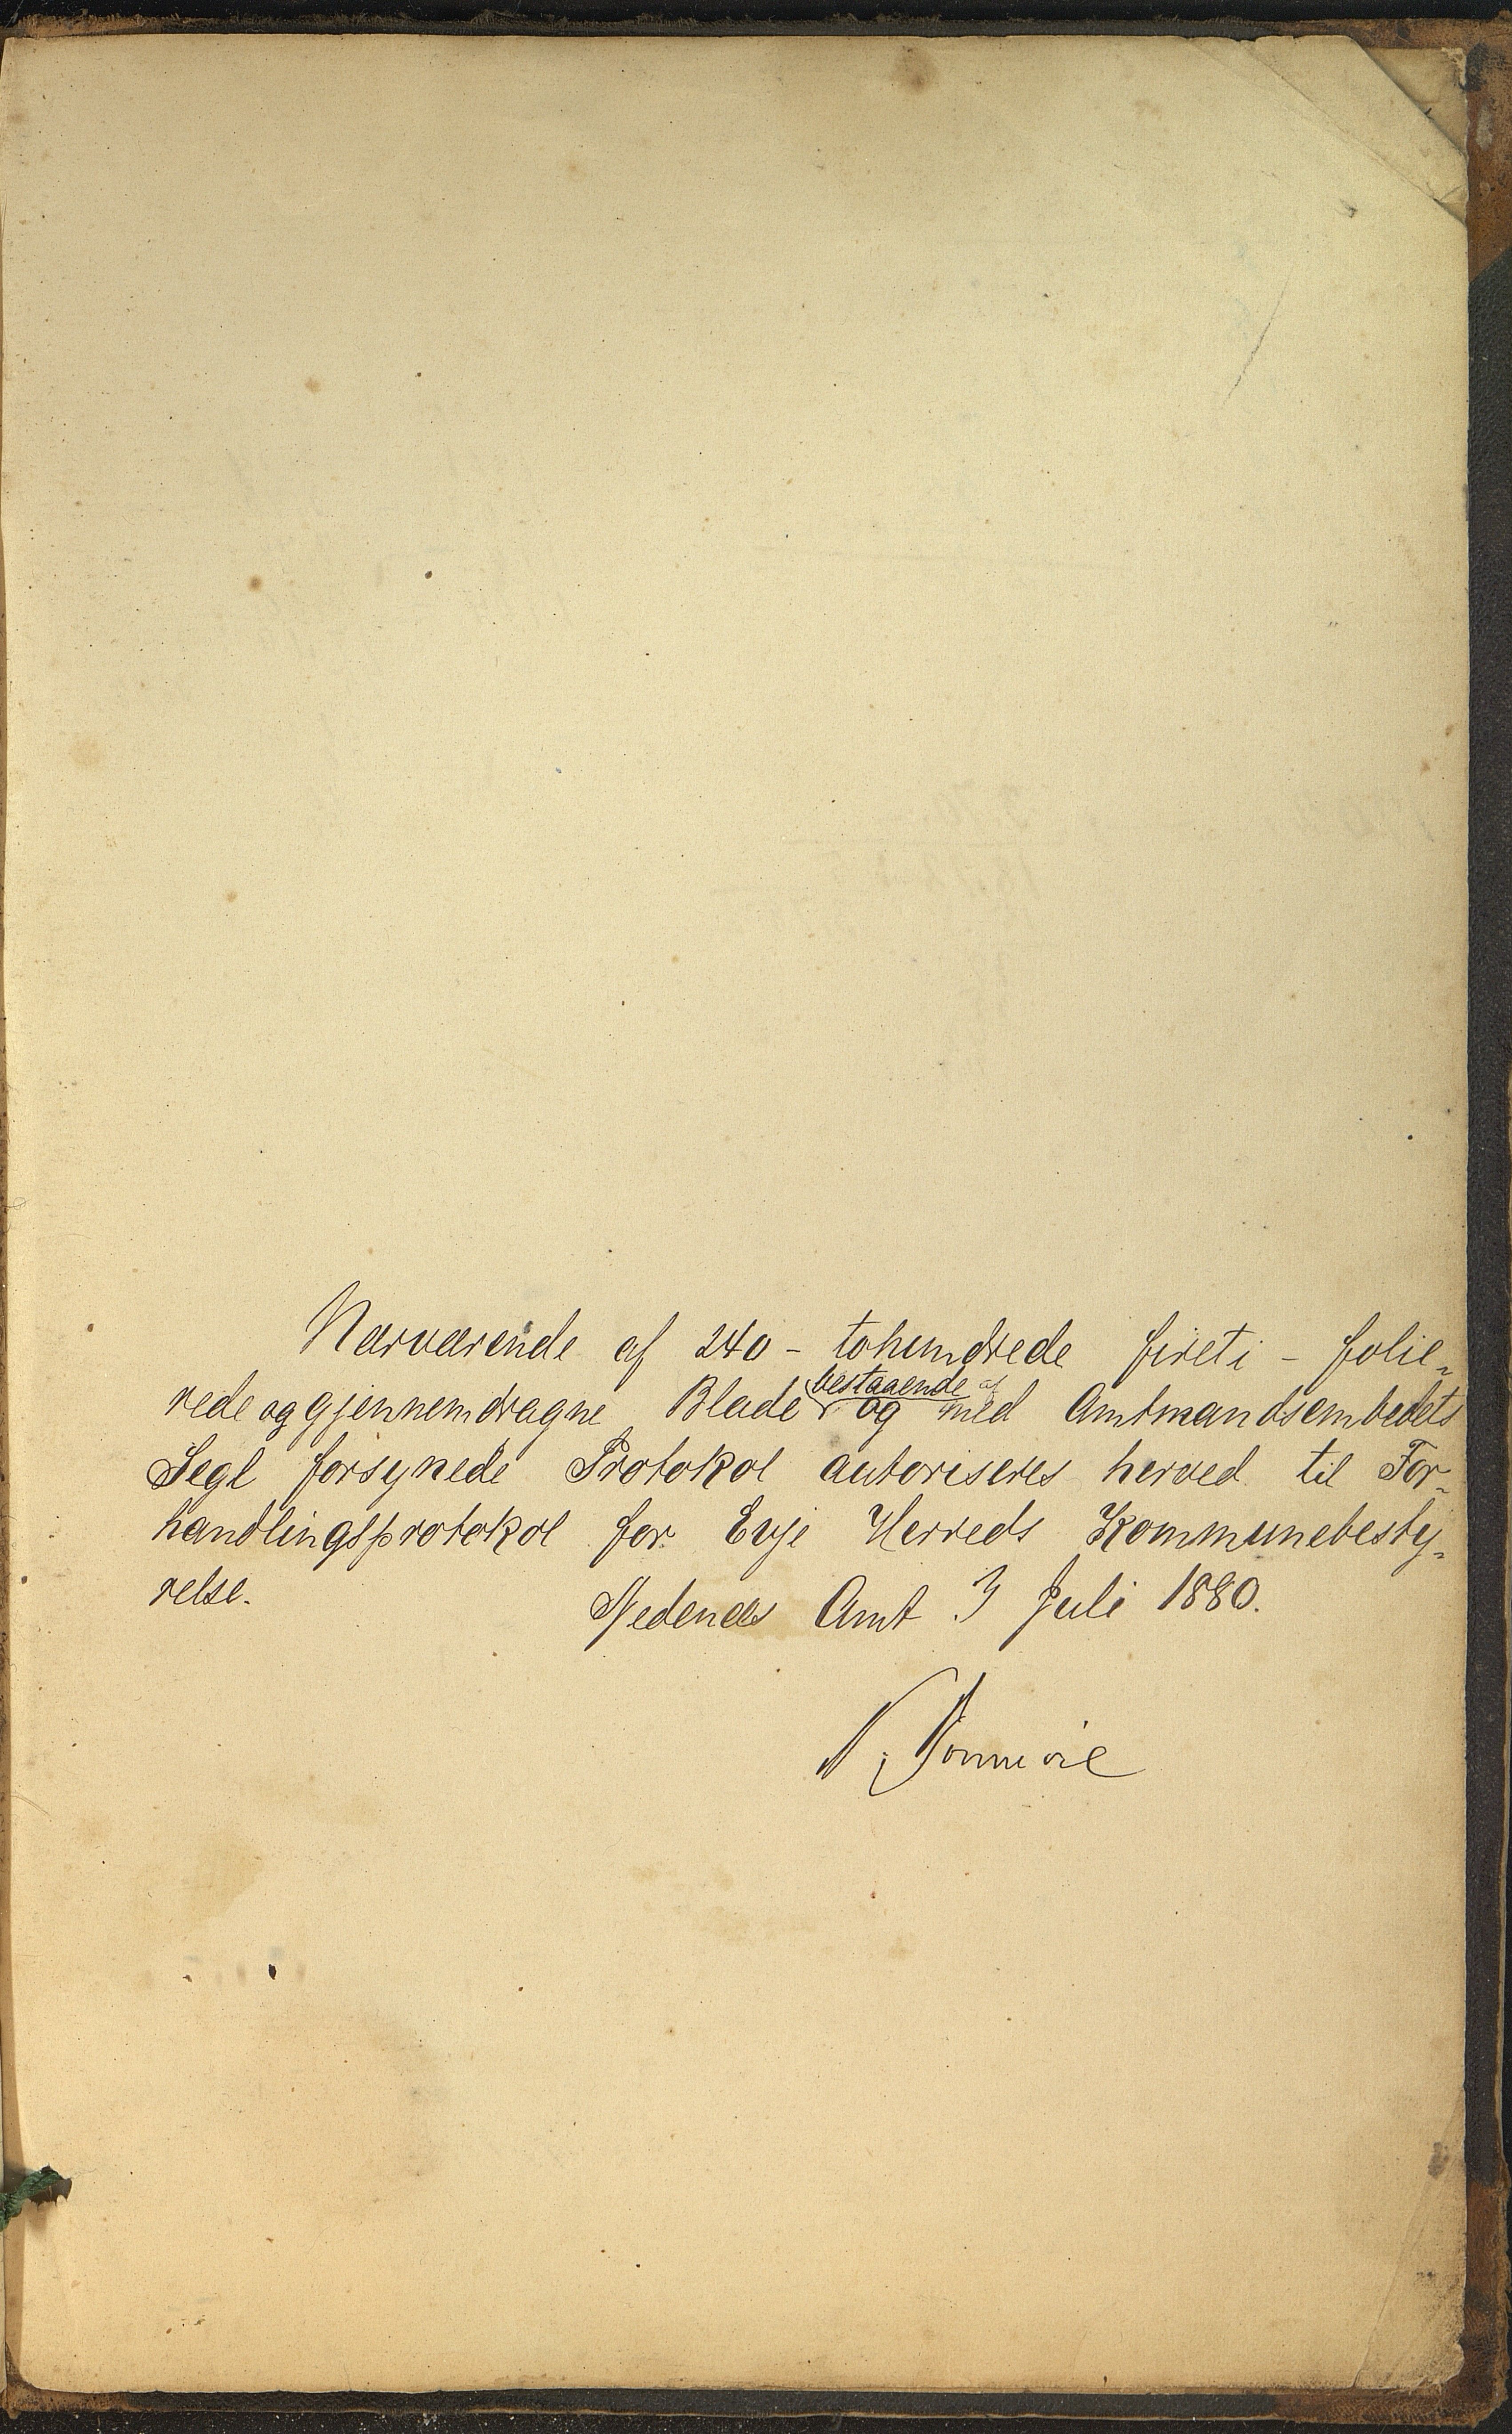 Nærværende af 240 - tohundrede fireti - folie-
rede og gjennemdragne Blade bestaaende og med Amtmandsembedets
Segl forsynede Protokol autoriseres herved til For-
handlingsprotokol for Evje Herreds Kommunebesty-
relse.
Nedenæs Amt 3 Juli 1880.